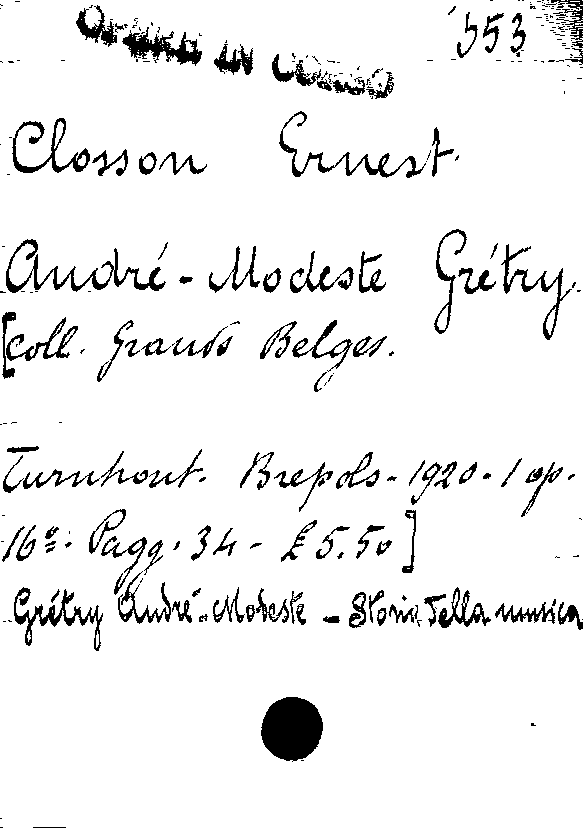 553
Closson Ernest.
André-Modeste Grétry.
[Coll. Grands Belges.
Turnhout. Brepols - 1920 - 1 op.
16º. Pagg. 34 - £ 5.50]
Grétry André-Modeste - Storia della musica